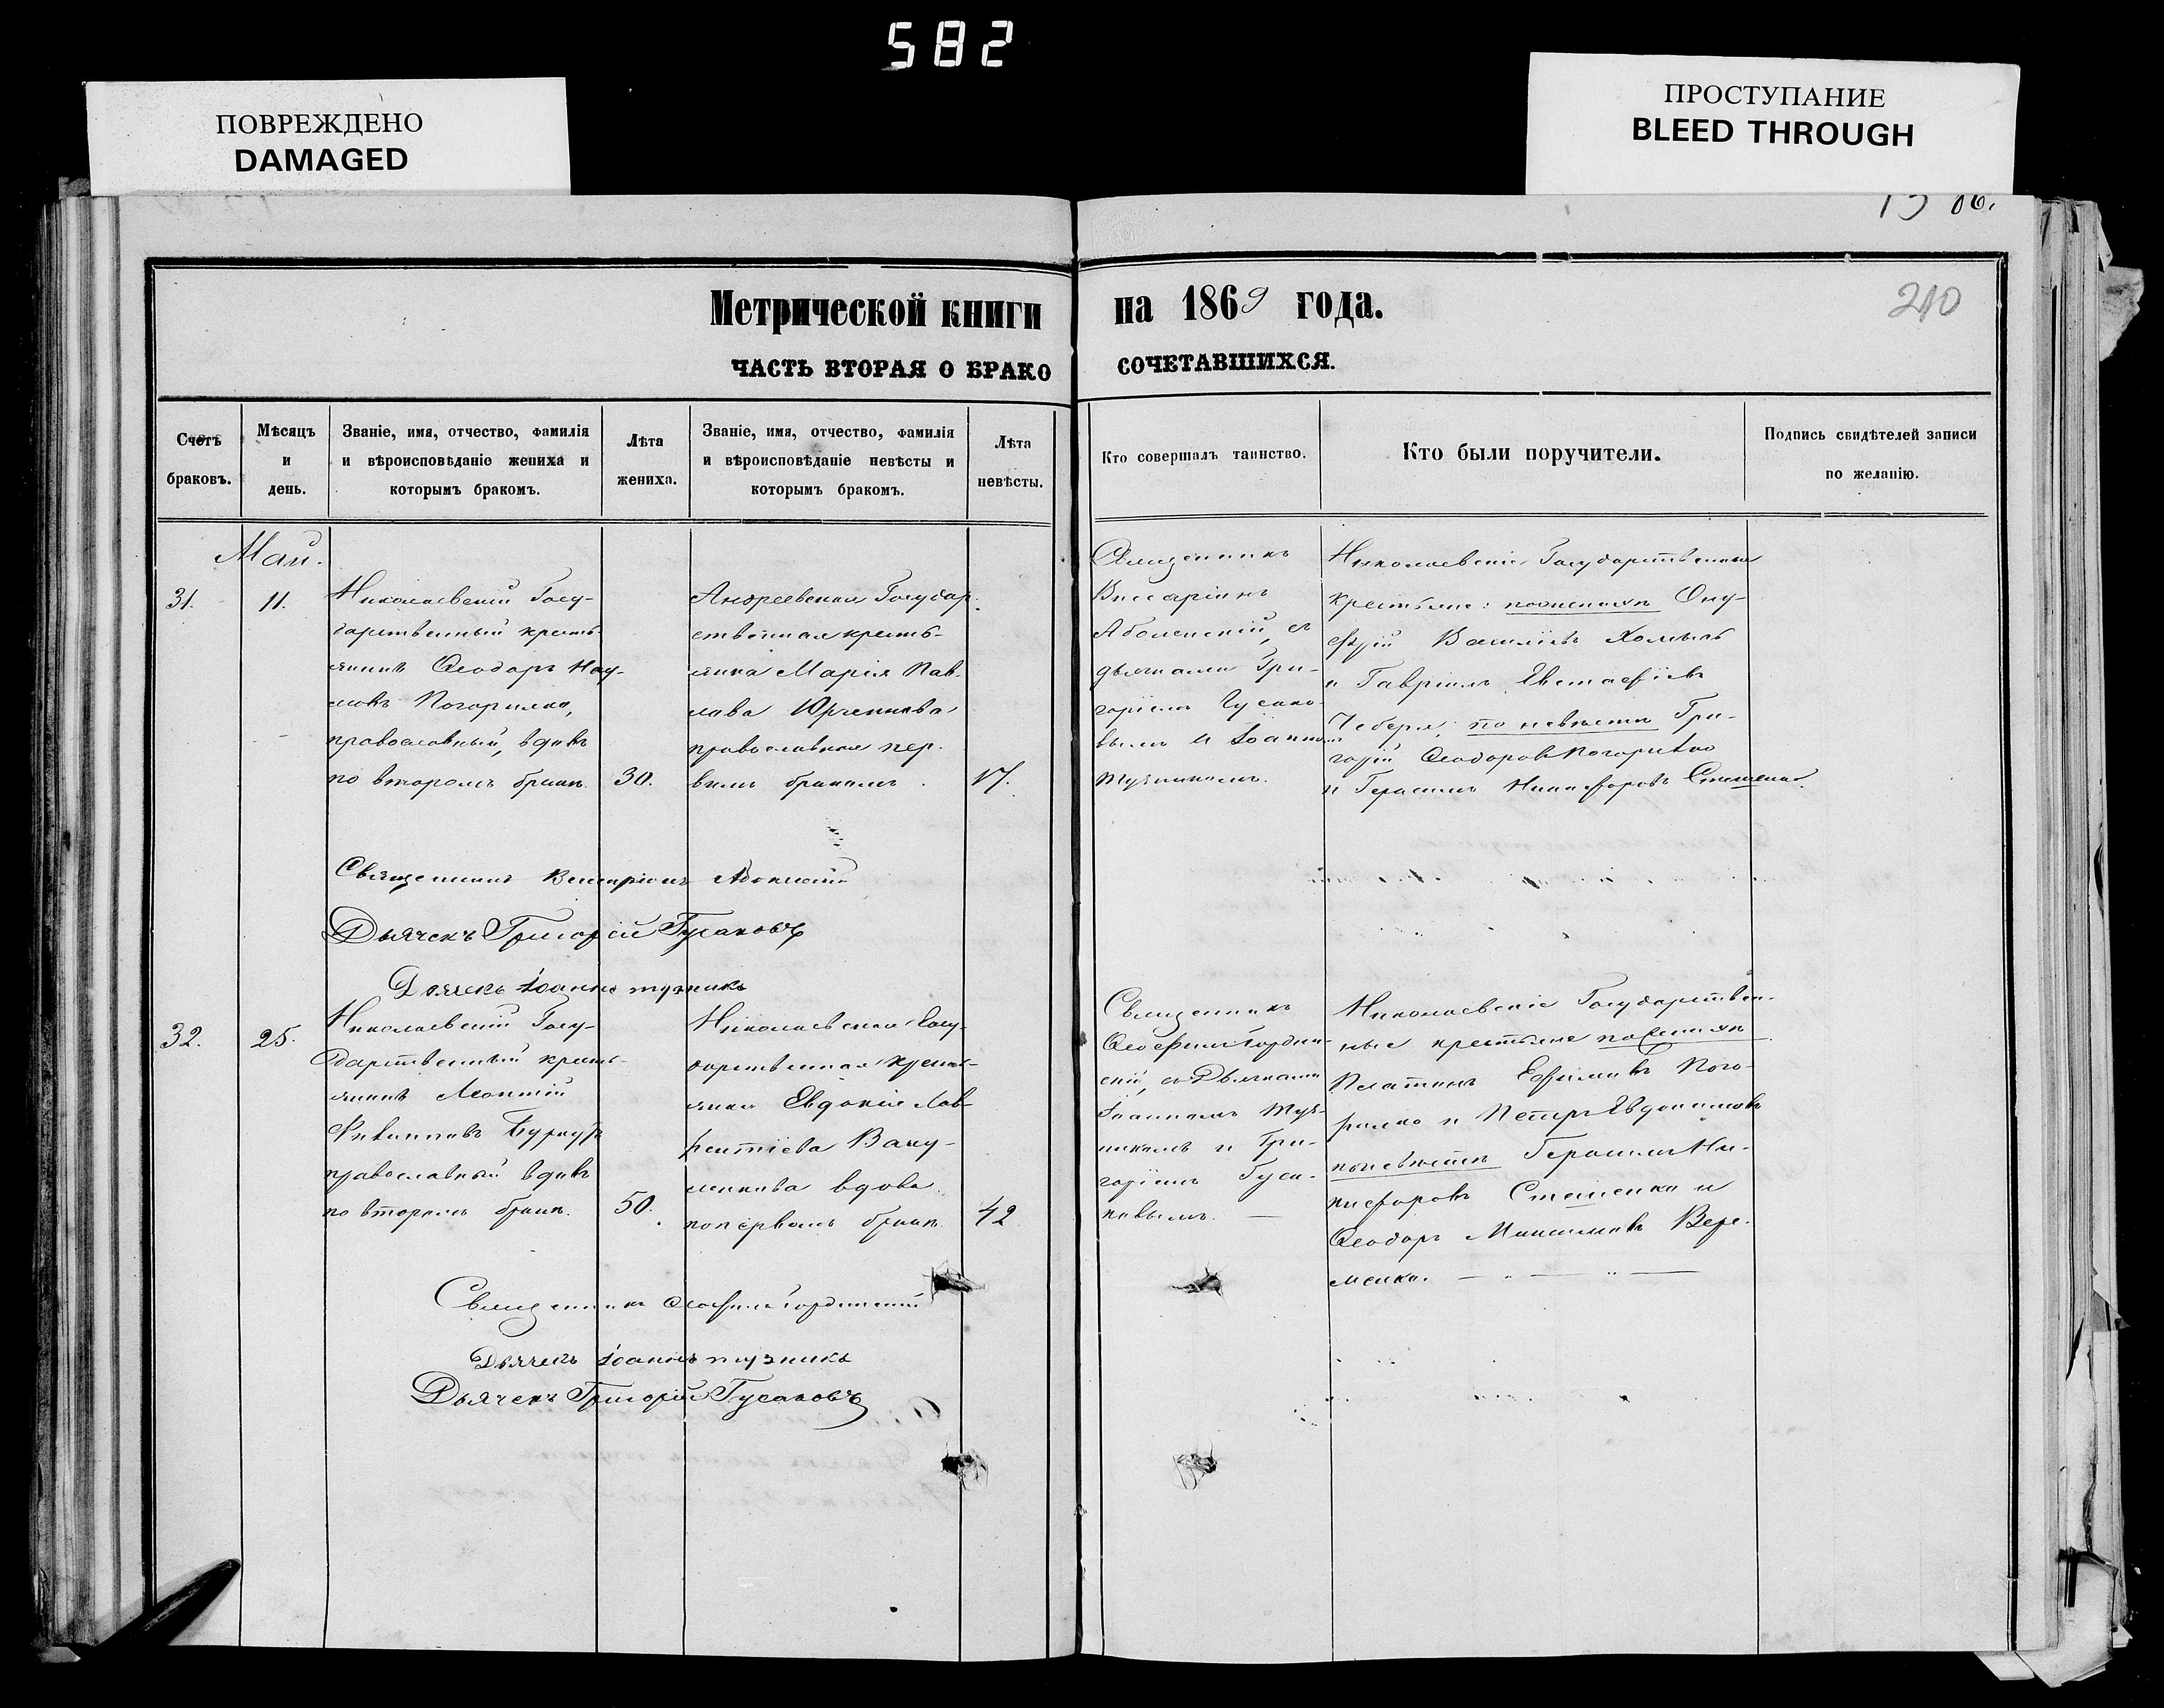 582
ПОВРЕЖДЕНО
DAMAGED
ПРОСТУПАНИЕ
BLEED THROUGH
210
Метрической книги на 1869 года.
ЧАСТЬ ВТОРАЯ О БРАКОСОЧЕТАВШИХСЯ.
Счетъ
браковъ.
Мѣсяцъ
и
день.
Званіе, имя, отчество, фамилія
и вѣроисповѣданіе жениха и
которымъ бракомъ.
Лѣта
жениха.
Званіе, имя, отчество, фамилія
и вѣроисповѣданіе невѣсты и
которымъ бракомъ.
Лѣта
невѣсты.
Кто совершалъ таинство.
Кто были поручители.
Подпись свидѣтелей записи
по желанію.
Май.
31.
11.
Николаевскій Госу-
дарственный кресть-
янинъ Ѳеодоръ Нау-
мовъ Погорилко,
православный, вдовъ
по второмъ бракѣ.
30.
Андреевская Государ-
ственная кресть-
янка Марія Пав-
лова Юрченкова
православная пер-
вымъ бракомъ.
17.
Священникъ
Виссаріонъ
съ
дьячками Гри-
горіемъ Гусако-
вымъ и Іоанномъ
Тузникомъ.
Николаевскіе Государственные
крестьяне: по женихѣ Ону-
фрій Васильевъ
и Гавріилъ Евстафіевъ
Чеберя; по невѣстѣ Гри-
горій Ѳеодоровъ Погорилко
и Герасимъ Никифоровъ Стешенко.
Священникъ Виссаріонъ
Дьячекъ Григорій Гусаковъ
Дьячекъ Іоаннъ Тузникъ
32.
25.
Николаевскій Госу-
дарственный кресть-
янинъ Леонтій
Филипповъ
православный вдовъ
по второмъ бракѣ.
50.
Николаевская Госу-
дарственная кресть-
янка Евдокія Лав-
рентіева Ваку-
ленкова вдова
по первомъ бракѣ.
42
Священникъ
Ѳеофилъ Гордин-
скій, съ Дьячками
Іоанномъ Туз-
никомъ и Гри-
горіемъ Гуса-
ковымъ. —
Николаевскіе Государствен-
ные крестьяне по женихѣ
Платонъ Ефимовъ Пого-
рилко и Петръ Евдокимовъ
по невѣстѣ Герасимъ Ни-
кифоровъ Стешенко и
Ѳеодоръ Максимовъ Вере-
менко.
Священникъ Ѳеофилъ Гординскій
Дьячекъ Іоаннъ Тузникъ
Дьячекъ Григорій Гусаковъ